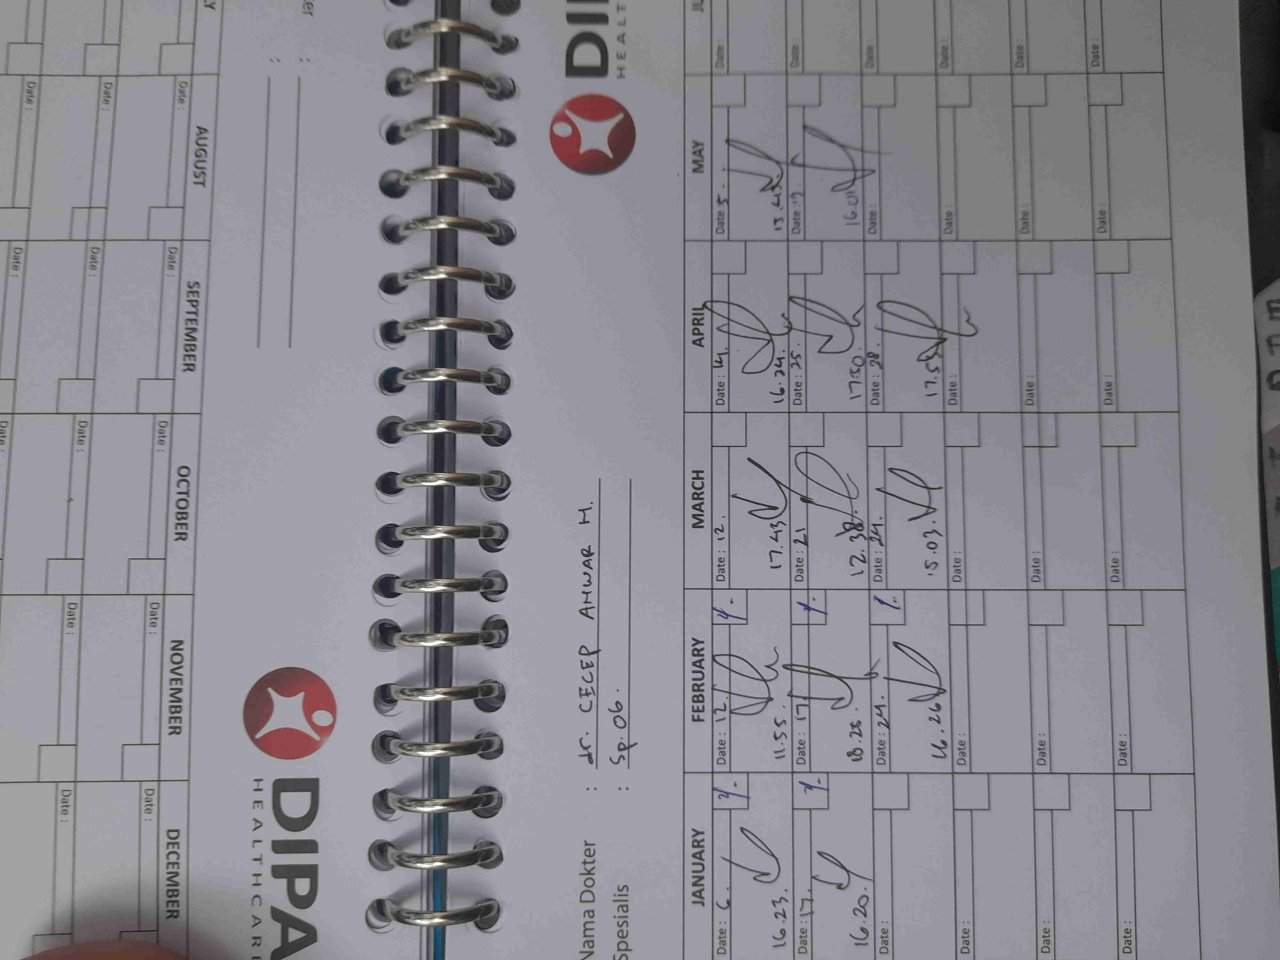 DIPA
HEALTHCAR
Nama Dokter : dr. CECEP ANWAR H.
Spesialis : Sp. OG.
JANUARY FEBRUARY MARCH APRIL MAY
Date : 6. Date : 12. Date : 12. Date : 14. Date : 5.
y. y.
16.23. 11.55. 17.43 16.24. 13.43
Date : 17. Date : 17. Date : 21 Date : 25. Date :
y. y.
16.20. 18.28. 12.38. 17.50. 16.01
Date : Date : 24. Date : 24. Date : 28. Date :
y.
16.26 15.03. 17.5
Date : Date : Date : Date : Date :
Date : Date : Date : Date : Date :
Date : Date : Date : Date : Date :
DI
HEALT
Date :
Date :
Date :
Date :
Date :
Date :
DIPA
HEALTHCARE
AUGUST SEPTEMBER OCTOBER NOVEMBER DECEMBER
Date : Date : Date : Date : Date :
Date : Date : Date : Date : Date :
Date : Date : Date :